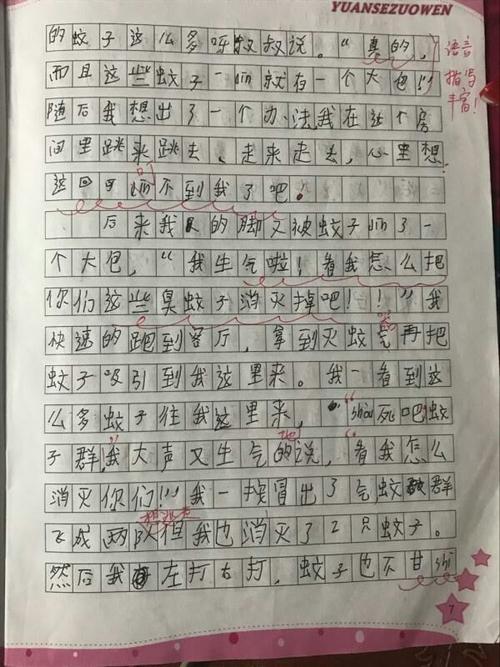 YUANSEZUOWEN
的蚊子这么多呀叔叔说。“真的，
语言
描写
丰富！
而且这些蚊子一din就有一个大包!!!
随后我想出了一个办法我在这个房
间里跳来跳去、走来走去，心里想
这回可din不到我了吧。
后来我的脚又被蚊子din了一
个大包，“我生气啦！看我怎么把
你们这些臭蚊子消灭掉吧！！”我
快速的跑到客厅，拿到灭蚊气再把
蚊子吸引到我这里来。我一看到这
么多蚊子往我这里来，“shòu死吧蚊
子群，我大声又生气的说，看我怎么
地
消灭你们!!!我一按冒出了气蚊群
飞成两队但我也消灭了2只蚊子。
然后我左打右打，蚊子也不甘shi
7